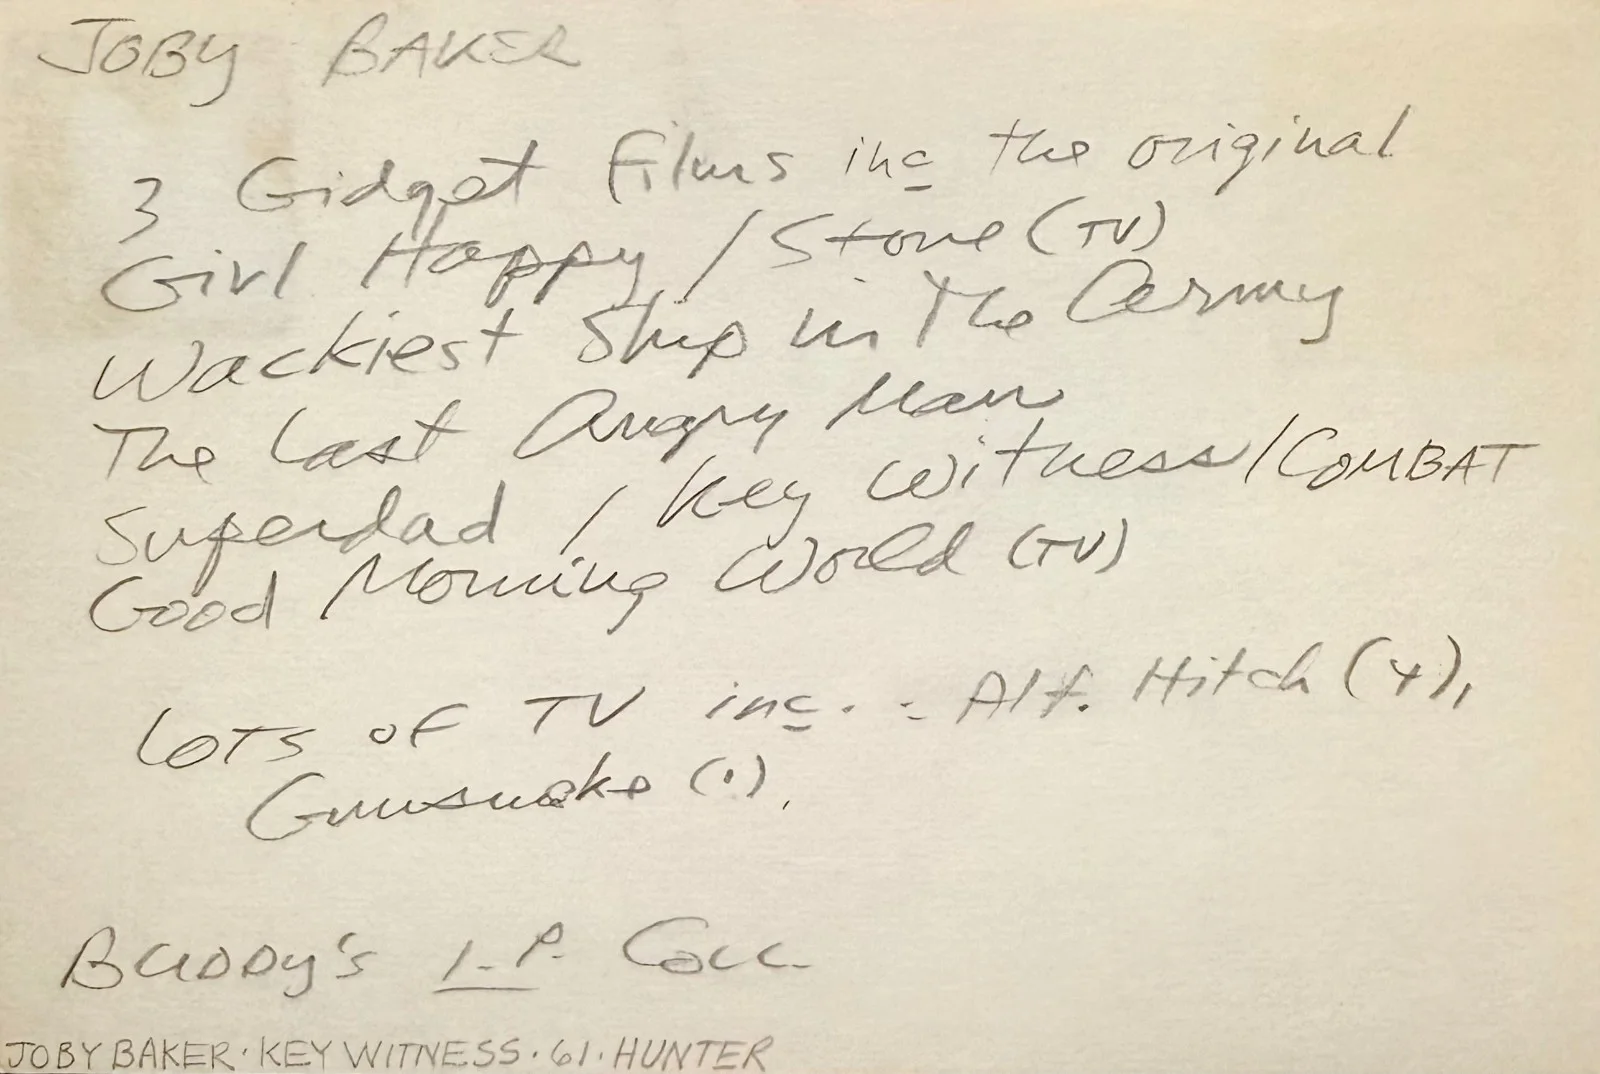 JOBY BAKER
3 Gidget Films inc the original
Girl Happy / Stone (TV)
Wackiest Ship in The Army
The Last Angry Man
Superdad / Key Witness / COMBAT
Good Morning World (TV)
LOTS OF TV inc. : Alf. Hitch (4),
Gunsmoke (1).
BUDDY'S I.P. Coll.
JOBY BAKER · KEY WITNESS · 61 · HUNTER